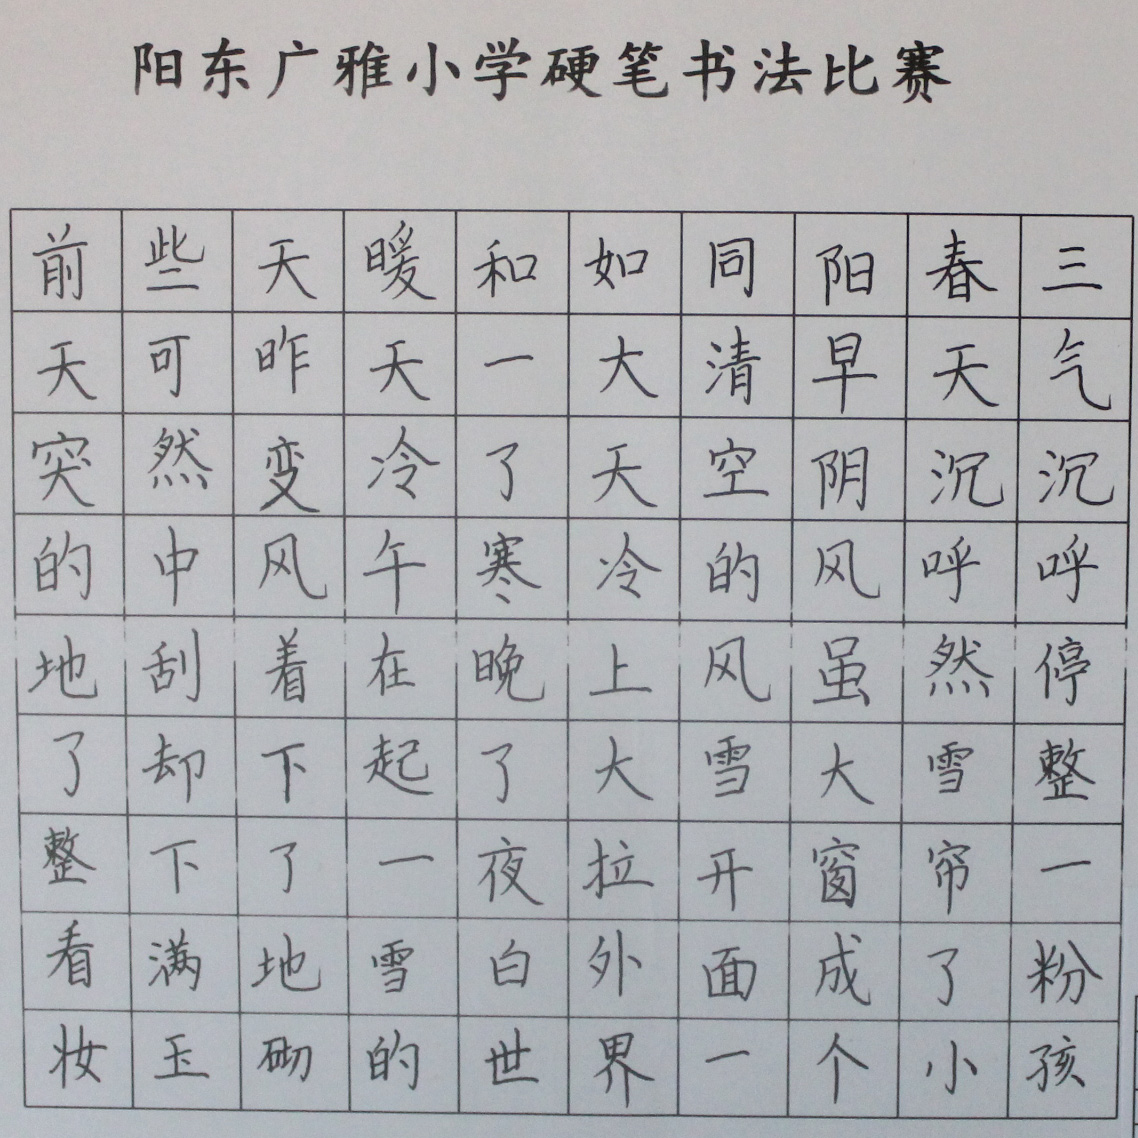 阳东广雅小学硬笔书法比赛
前些天暖和如同阳春三
天可昨天一大清早天气
突然变冷了天空阴沉沉
的中风午寒冷的风呼呼
地刮着在晚上风虽然停
了却下起了大雪大雪整
整下了一夜拉开窗帘一
看满地雪白外面成了粉
妆玉砌的世界一个小孩